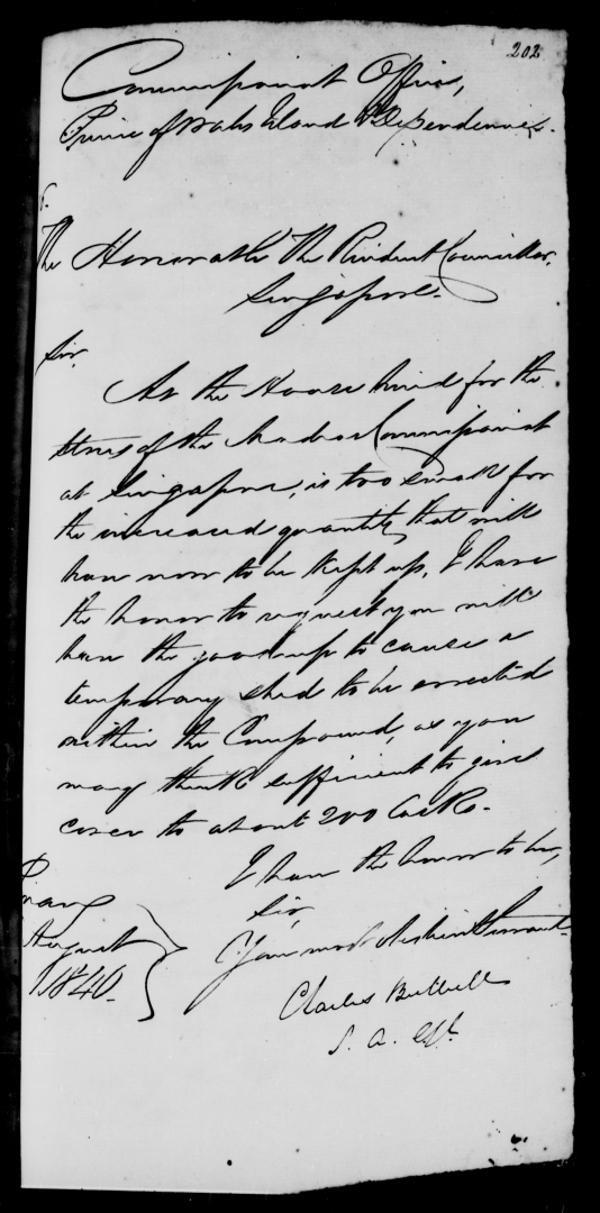 202
Commissariat Office,
Prince of Wales Island & Dependencies.
The Honorable The Resident Councillor,
Singapore.
Sir,
As the House hired for the
Stores of the Madras Commissariat
at Singapore, is too small for
the increased quantity that will
have now to be kept up, I have
the honor to request you will
have the goodness to cause a
temporary shed to be erected
within the Compound, as you
may think sufficient to give
cover to about 200 Casks.
I have the honor to be,
Sir,
Your most obedient Servant
Charles
August
1840.